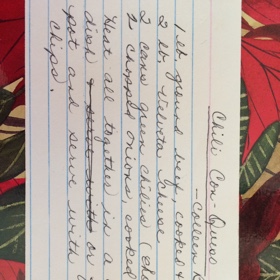 Chili Con-Queso
-Colleen
1 lb. ground beef, cooked &
2 lb. Velveta Cheese
2 cans green chilies (ch
2 chopped onions, cooked
Heat all together in a
dish or
pot and serve with
chips.